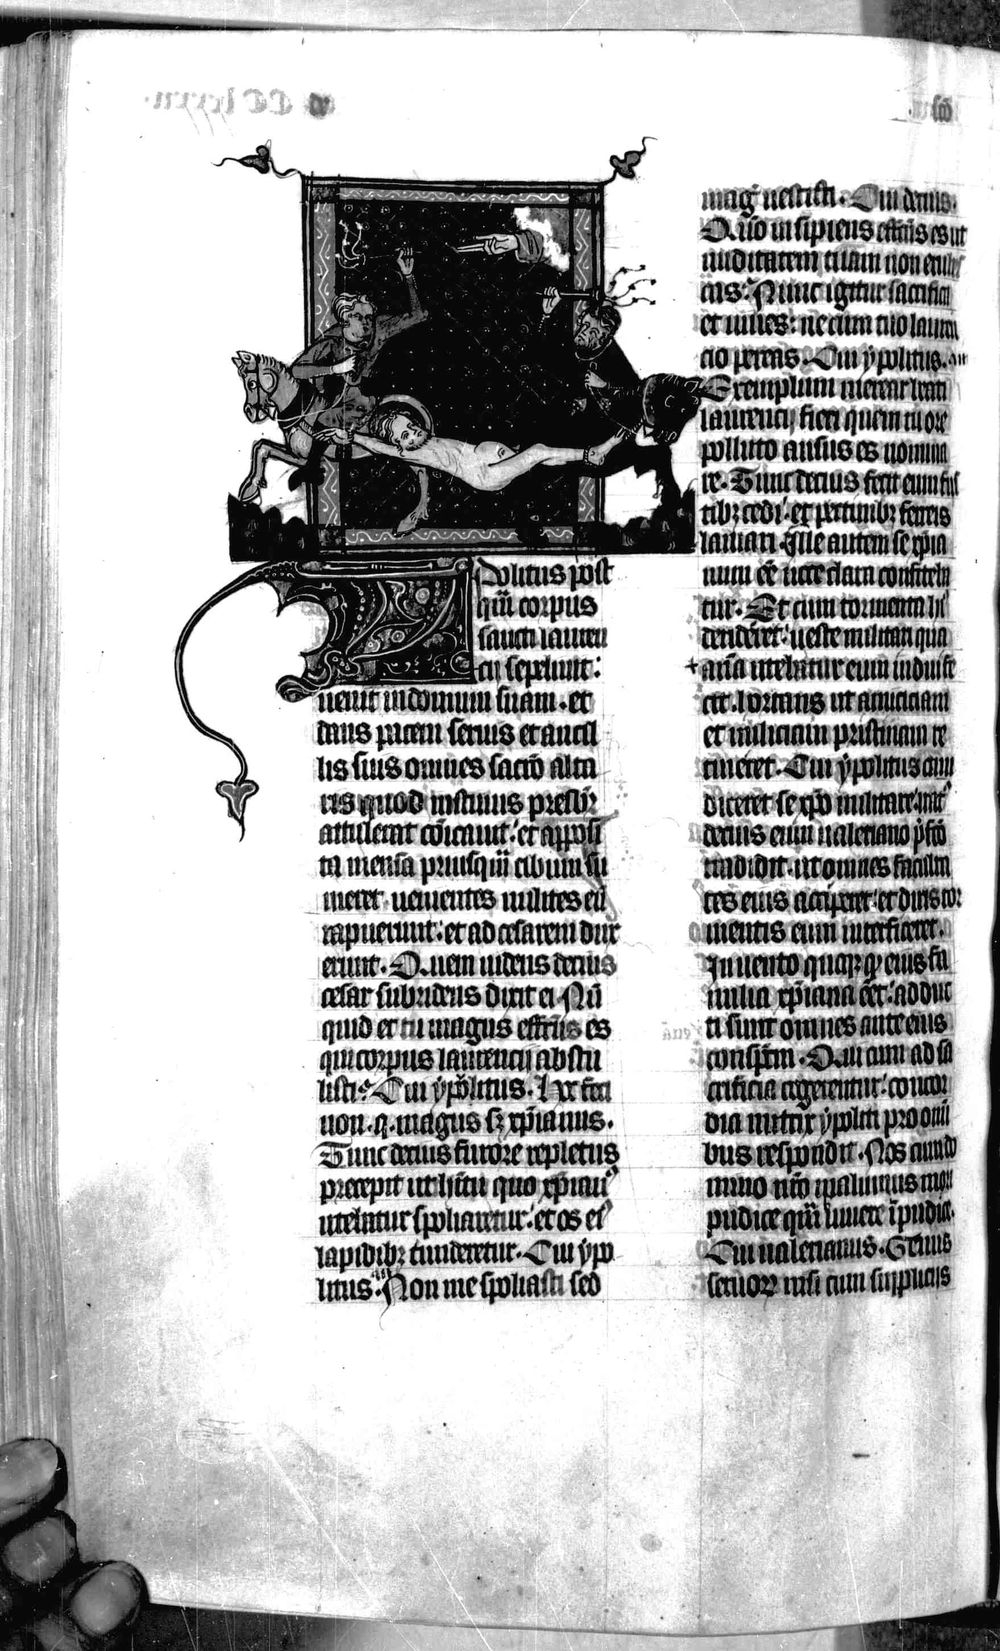 Ypolitus post
qua̅ corpus
sancti laure̅
cij sepeliuit:
uenit in domum suam. et
dans pacem seruis et ancil
lis suis omnes sac̅o alta
ris quod iustinus presbr̅
attulerat co̅icauit: et apposi
ta mensa priusqua̅ cibum su
meret uenientes milites eu̅
rapuerunt: et ad cesarem dux
erunt. Quem uidens decius
cesar subridens dixit ei Nu̅
quid et tu magus effc̅us es
qui corpus laurencij abstu
listi? Cui ẏpolitus. Hoc feci
non .q. magus sꝫ xp̅ianus.
Tunc decius furore repletus
precepit ut hi̅tu quo xp̅ian9
utebatur spoliaretur: et os ei9
lapidibꝫ tunderetur. Cui ẏpo
litus: Non me spoliasti sed
mag̅ uestisti. Cui decius.
Quo̅ insipiens effc̅us es ut
nuditatem tuam non erubes
cis: Nunc igitur sacrifica
et uiues: ne cum tuo lauren
cio pereas. Cui ẏpolitus.
Exemplum merear beati
laurencij fieri quem tu ore
polluto ausus es nomina
re. Tunc decius fecit eum fus
tibꝫ cedi: et pectinibꝫ ferreis
laniari. Ille autem se xp̅ia
num ee̅ uoce clara confiteba
tur. Et cum tormenta
derideret: ueste militari qua
utebatur eum indui fe
cit. hortans ut amiciciam
et miliciam pristinam re
tineret. Cum ẏpolitus cum
diceret se xp̅o militare: irat9
decius eum ualeriano p̅fc̅o
tradidit. ut omnes faculta
tes eius acciperet: et diris tor
mentis eum interficeret.
Inuento quoqꝫ qꝫ eius fa
milia xp̅iana ee̅t: adduc
ti sunt omnes ante eius
conspc̅m. Qui cum ad sa
crificia cogerentur: concor
dia nutrix ẏpoliti pro om̅i
bus respondit. Nos cum do
mino nr̅o malumus mori
pudice qua̅ uiuere i̅pudice.
Cui ualerianus. Genus
seruoꝝ nisi cum suppliciis